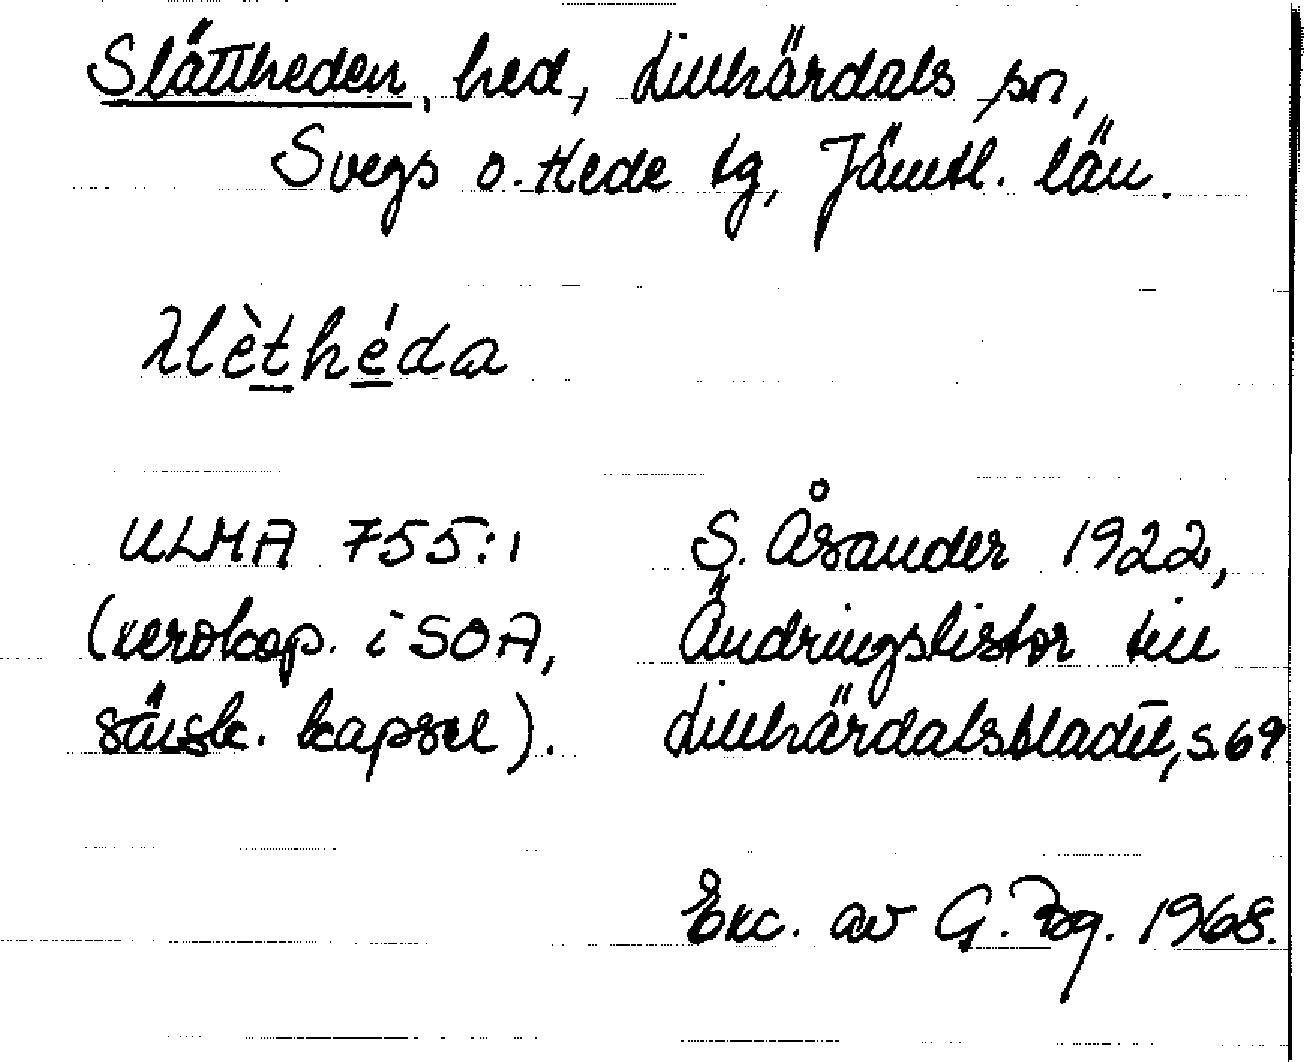 Slättheden, hed, Lillhärdals sn,
Svegs o. Hede tg, Jämtl. län.
λlèthéda
ULMA 755:1
(xerokop. i SOA,
särsk. kapsel).
S. Åsander 1922,
Ändringslistor till
Lillhärdalsbladet, s. 69
Exc. av G. 1968.